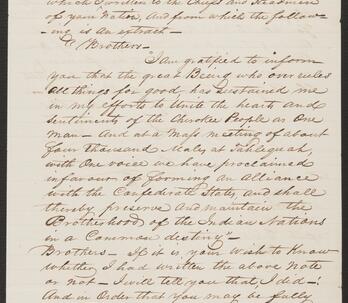 which I written to the Chiefs and Headmen
of your Nation, And from which the follow-
-ing is an extract—
"Brothers—
"I am gratified to inform
you that the great Being who over rules
all things for good, has sustained me
in my efforts to Unite the hearts and
sentiments of the Cherokee People as One
man— And at a Mass meeting of about
four thousand Males, at Tahlequah,
with One voice we have proclaimed
in favour of forming an Alliance
with the Confederate States, and shall
thereby preserve and maintain the
Brotherhood of the Indian Nations
in a Common destiny"—
Brothers— If it is your wish to Know
whether I had written the above Note
or not— I will tell you that, I did—!
And in Order that You may be fully